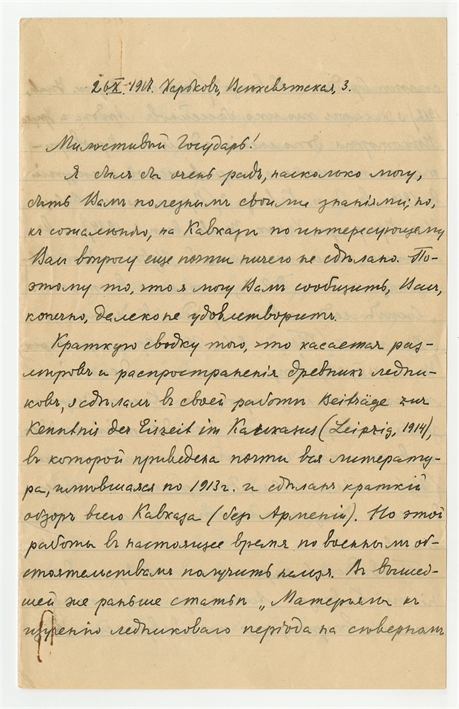 26.X.1917. Харьковъ, Всѣхсвятская, 3.
Милостивый Государь!
Я былъ бы очень радъ, насколько могу,
быть Вамъ полезнымъ своими знаніями; но,
къ сожалѣнію, на Кавказѣ по интересующему
Васъ вопросу еще почти ничего не сдѣлано. По-
этому то, что я могу Вамъ сообщить, Васъ,
конечно, далеко не удовлетворитъ.
Краткую сводку того, что касается раз-
мѣровъ и распространенія древнихъ ледни-
ковъ, я сдѣлалъ въ своей работѣ Beiträge zur
Kenntnis der Eiszeit im Kaukasus (Leipzig, 1914),
въ которой приведена почти вся литерату-
ра, имѣвшаяся по 1913 г. и сдѣланъ краткій
обзоръ всего Кавказа (безъ Арменіи). Но этой
работы въ настоящее время по военнымъ об-
стоятельствамъ получить нельзя. Въ вышед-
шей же раньше статьѣ „Матерьялы къ
изученію ледниковаго періода на сѣверномъ